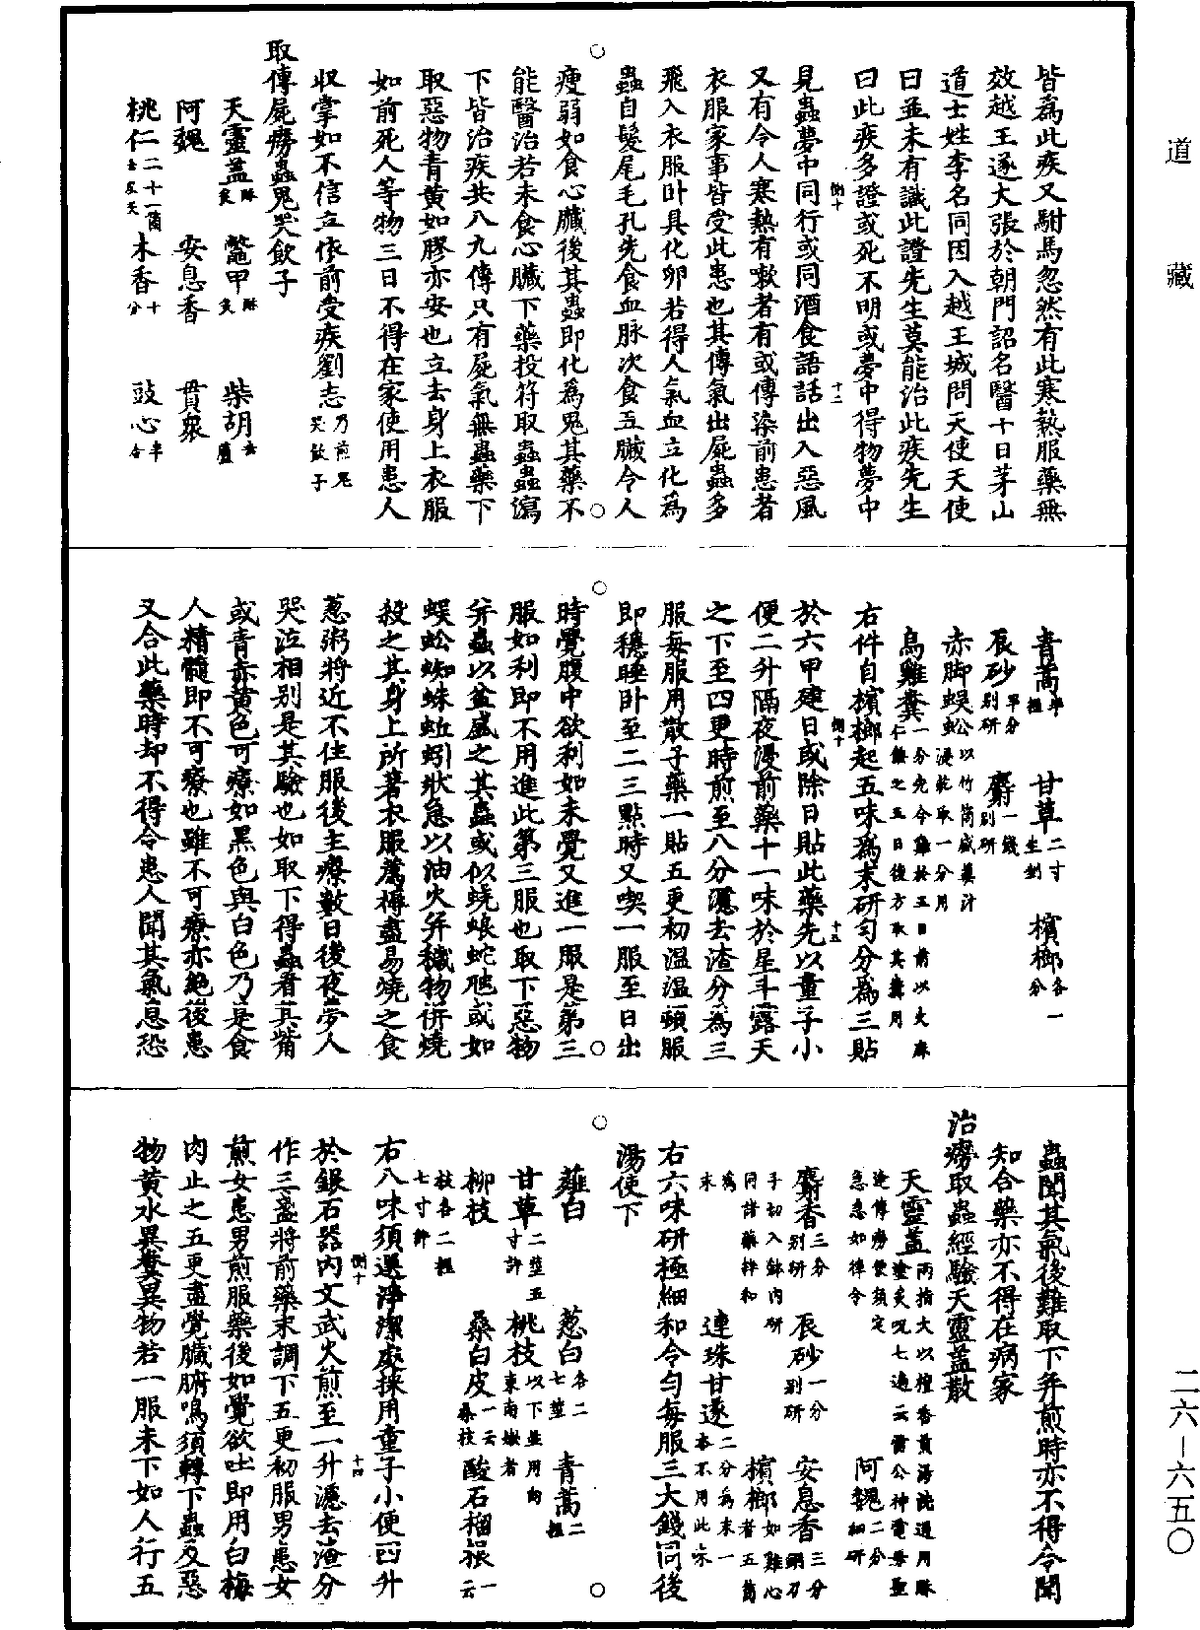 道藏
皆為此疾又駙馬忽然有此寒熱服藥無
效越王遂大張於朝門詔名醫十日茅山
道士姓李名同因入越王城問天使天使
曰並未有識此證先生莫能治此疾先生
曰此疾多證或死不明或夢中得物夢中
見蟲夢中同行或同酒食語話出入惡風
又有令人寒熱有嗽者有或傳染前患者
衣服家事皆受此患也其傳氣出屍蟲多
飛入衣服卧具化卵若得人氣血立化為
蟲自髮尾毛孔先食血脉次食五臟令人
瘦弱如食心臟後其蟲即化為鬼其藥不
能醫治若未食心臟下藥投符取蟲蟲瀉
下皆治疾共八九傳只有屍氣無蟲藥下
取惡物青黃如膠亦安也立去身上衣服
如前死人等物三日不得在家使用患人
収掌如不信立依前受疾劉志乃煎鬼哭飲子
取傳屍癆蟲鬼哭飲子
天靈蓋酥炙 鼈甲酥炙 柴胡去蘆
阿魏 安息香 貫衆
桃仁二十一箇去皮尖 木香十分 豉心半合
青蒿半握 甘草二寸生剉 檳榔各一分
辰砂半分別研 麝一錢別研
赤脚蜈蚣以竹筒盛薑汁浸乾取一分用
烏雞糞一分先令雞於五日前以火麻仁餵之五日後方取其糞用
右件自檳榔起五味為末研勻分為三貼
於六甲建日或除日貼此藥先以童子小
便二升隔夜浸前藥十一味於星斗露天
之下至四更時煎至八分濾去渣分為三
服每服用散子藥一貼五更初温温頓服
即穩睡卧至二三點時又喫一服至日出
時覺腹中欲利如未覺又進一服是第三
服如利即不用進此第三服也取下惡物
并蟲以盆盛之其蟲或似蜣蜋蛇虺或如
蜈蚣蜘蛛蚯蚓狀急以油火并穢物併燒
殺之其身上所著衣服薦褥盡易燒之食
葱粥將近不住服後主療數日後夜夢人
哭泣相別是其驗也如取下得蟲看其觜
或青赤黃色可療如黑色與白色乃是食
人精髓即不可療也雖不可療亦絕後患
又合此藥時却不得令患人聞其氣息恐
蟲聞其氣後難取下并煎時亦不得令聞
知合藥亦不得在病家
治癆取蟲經驗天靈蓋散
天靈蓋兩指大以檀香黃湯洗過用酥塗炙呪七遍云雷公神電母聖逢傳癆便須定急急如律令 阿魏二分細研
麝香三分別研 辰砂一分別研 安息香三分銅刀子切入鉢內研同諸藥拌和為末 連珠甘遂二分為末一本不用此味 檳榔如雞心者五箇
右六味研極細和令勻每服三大錢同後
湯使下
薤白 葱白各二七莖 青蒿二握
甘草二莖五寸許 桃枝以下並用向東南嫩者
柳枝 桑白皮一云桑枝 酸石榴根一云枝各二握七寸許
右八味須選淨潔處採用童子小便四升
於銀石器內文武火煎至一升濾去渣分
作三盞將前藥末調下五更初服男患女
煎女患男煎服藥後如覺欲吐即用白梅
肉止之五更盡覺臟腑鳴須轉下蟲及惡
物黃水異糞異物若一服未下如人行五
二六—六五〇